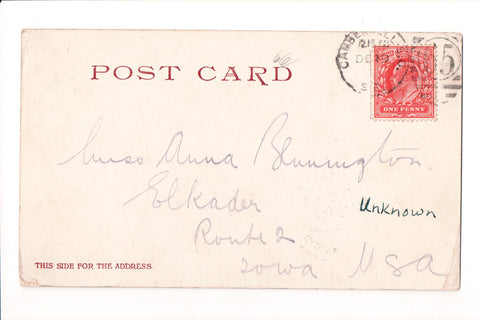 CAMBERWELL
POST CARD
DE
S.E.
5
ONE PENNY
Miss Anna Blunnington.
Elkader
Unknown
Route 2
Iowa U.S.A
THIS SIDE FOR THE ADDRESS.